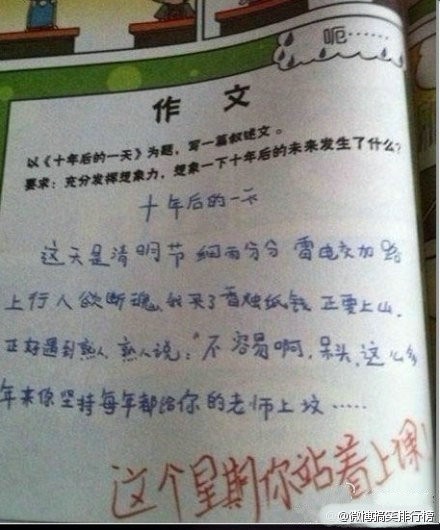 呃……
作文
以《十年后的一天》为题，写一篇叙述文。
要求：充分发挥想象力，想象一下十年后的未来发生了什么？
十年后的一天
这天是清明节 细雨分分 雷电交加 路
上行人欲断魂，我买了香烛纸钱 正要上山。
正好遇到熟人，熟人说：“不容易啊，呆头，这么多
年来你坚持每年都给你的老师上坟……
这个星期你站着上课！
@微博搞笑排行榜